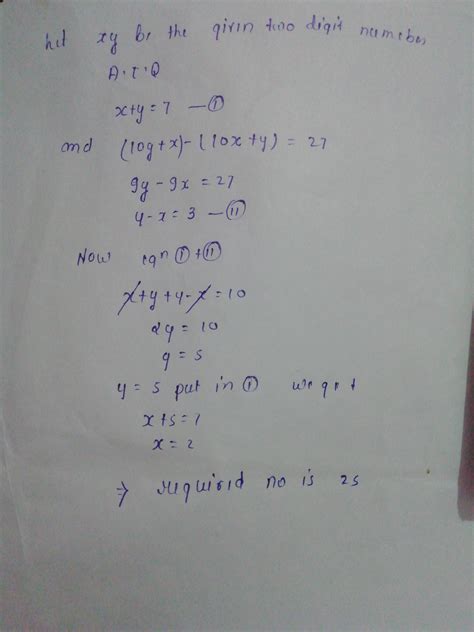 let xy be the given two digit number
A.T.Q
x+y = 7 — (I)
and (10y+x) - (10x+y) = 27
9y - 9x = 27
y - x = 3 — (II)
Now eqn (I) + (II)
x+y+y-x = 10
2y = 10
y = 5
y = 5 put in (I) we get
x+5 = 7
x = 2
⇒ required no is 25